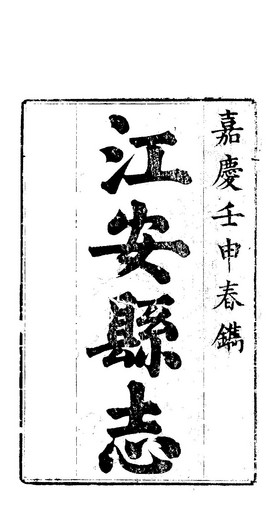 嘉慶壬申春鐫
江安縣志